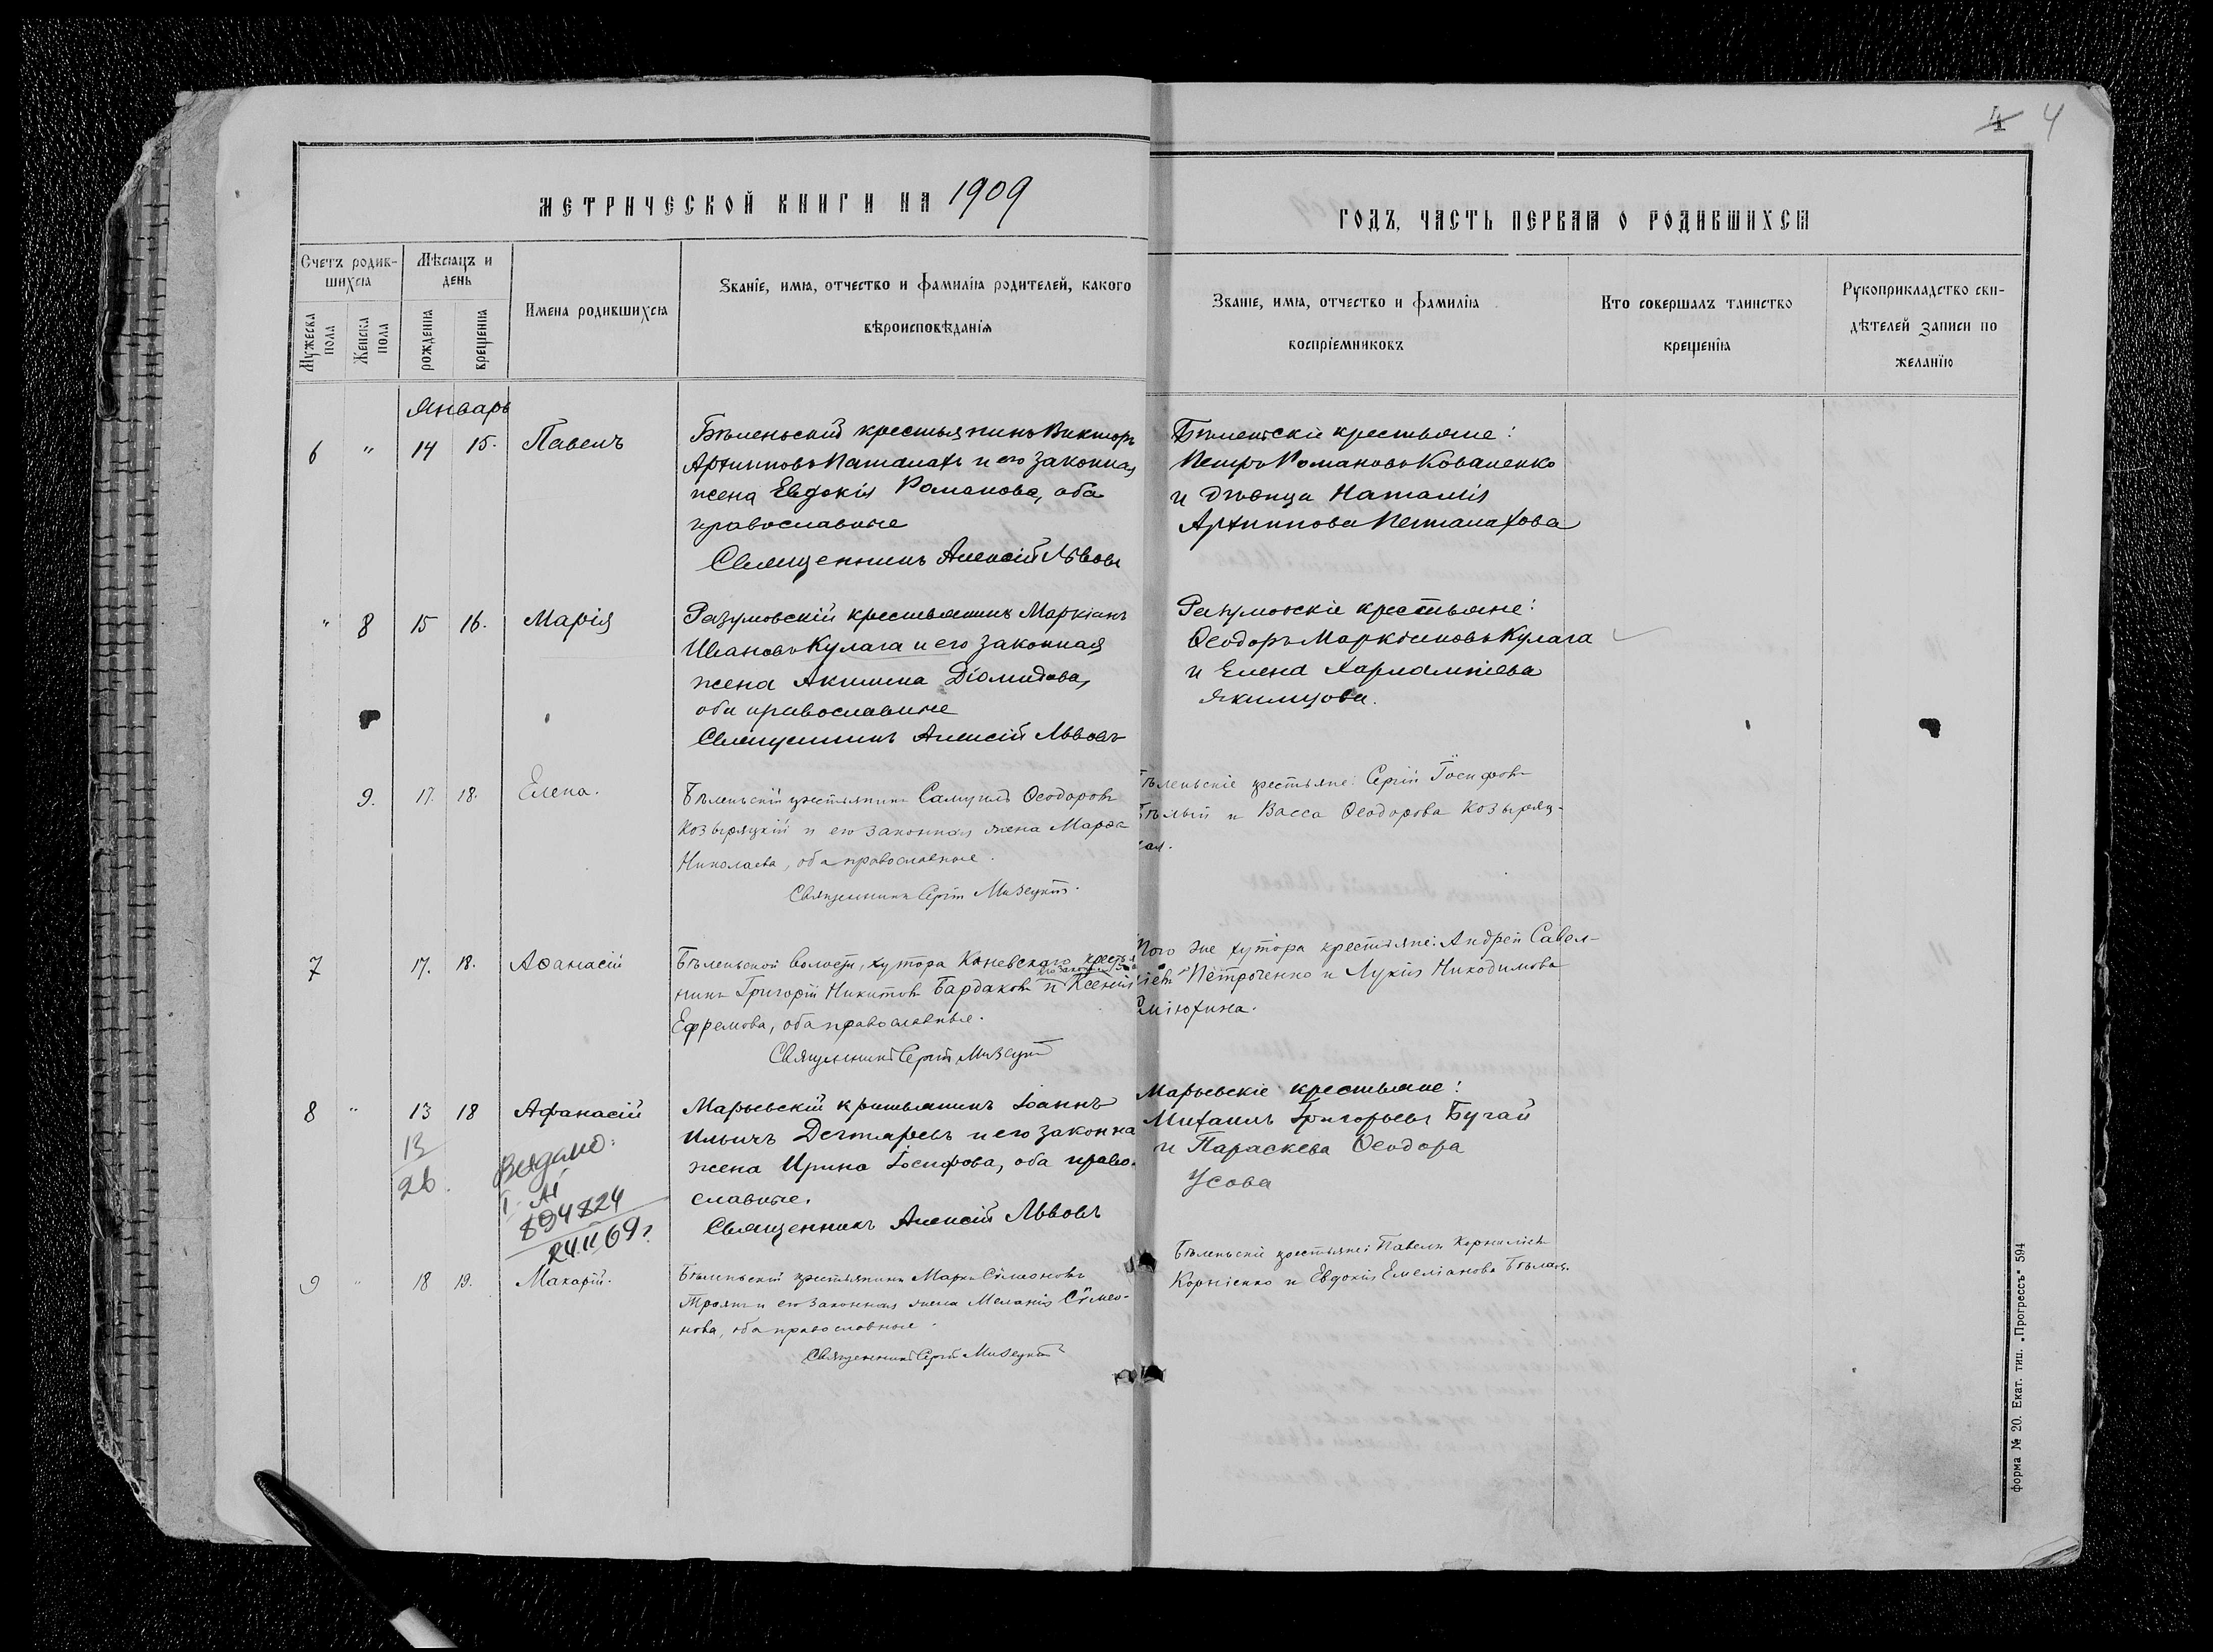 4 4
МЕТРИЧЕСКОЙ КНИГИ НА 1909
ГОДЪ, ЧАСТЬ ПЕРВАЯ О РОДИВШИХСЯ
Счетъ родив-
шихся
Мужеска пола
Женска пола
Мѣсяцъ и
день
рожденія
крещенія
Имена родившихся
Званіе, имя, отчество и фамилія родителей, какого
вѣроисповѣданія
Званіе, имя, отчество и фамилія
воспріемниковъ
Кто совершалъ таинство
крещенія
Рукоприкладство сви-
дѣтелей записи по
желанію
Январь
6 " 14 15. Павелъ
Бѣленьскій крестьянинъ Викторъ
Архиповъ и его законная
жена Евдокія Романова, оба
православные
Священникъ Алексій Львовъ
Бѣленьскіе крестьяне:
Петръ Романовъ Коваленко
и дѣвица Наталія
Архиппова
" 8 15 16. Марія
Разумовскій крестьянинъ Маркіанъ
Ивановъ Кулага и его законная
жена Акилина Діомидова,
оба православные
Священникъ Алексій Львовъ
Разумовскіе крестьяне:
Ѳеодоръ Маркіановъ Кулага
и Елена Харлампіева
Якимцова.
9. 17. 18. Елена.
Бѣленьскій крестьянинъ Самуилъ Ѳеодоровъ
Козыряцкій и его законная жена Марѳа
Николаева, оба православные.
Священникъ Сергій Мизецкій.
Бѣленьскіе крестьяне: Сергій Іосифовъ
Бѣлый и Васса Ѳеодорова Козыряц-
кая.
7 17. 18. Аѳанасій
Бѣленьской волости, хутора Каневскаго крестья
нинъ Григорій Никитовъ Бардаковъ и его законная жена Ксенія
Ефремова, оба православные.
Священникъ Сергій Мизецкій
Того же хутора крестьяне: Андрей Савел-
іевъ Петроченко и Лукія Никодимова
8 " 13 18 Афанасій
Марьевскій крестьянинъ Іоаннъ
Ильичъ Дегтяревъ и его законна
жена Ирина Іосифова, оба право-
славные.
Священникъ Алексій Львовъ
Марьевскіе крестьяне:
Михаилъ Григорьевъ Бугай
и Параскева Ѳеодора
Усова
13
26.
Выдано:
I АІ
894824
24.II 69 г.
9 " 18 19. Макарій.
Бѣленьскій крестьянинъ Маркъ Сѵмеоновъ
Троянъ и его законная жена Меланія Сѵмео-
нова, оба православные.
Священникъ Сергій Мизецкій
Бѣленьскіе крестьяне: Павелъ Корниліевъ
Корніенко и Евдокія Емеліанова Бѣлая.
форма № 20. Екат. тип. „Прогрессъ" 594